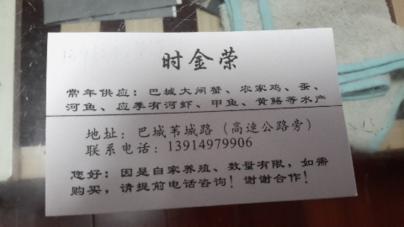 时金荣
常年供应：巴城大闸蟹、农家鸡、蛋、
河鱼、应季有河虾、甲鱼、黄鳝等水产
地址：巴城苇城路（高速公路旁）
联系电话：13914979906
您好：因是自家养殖、数量有限，如需
购买，请提前电话咨询！谢谢合作！